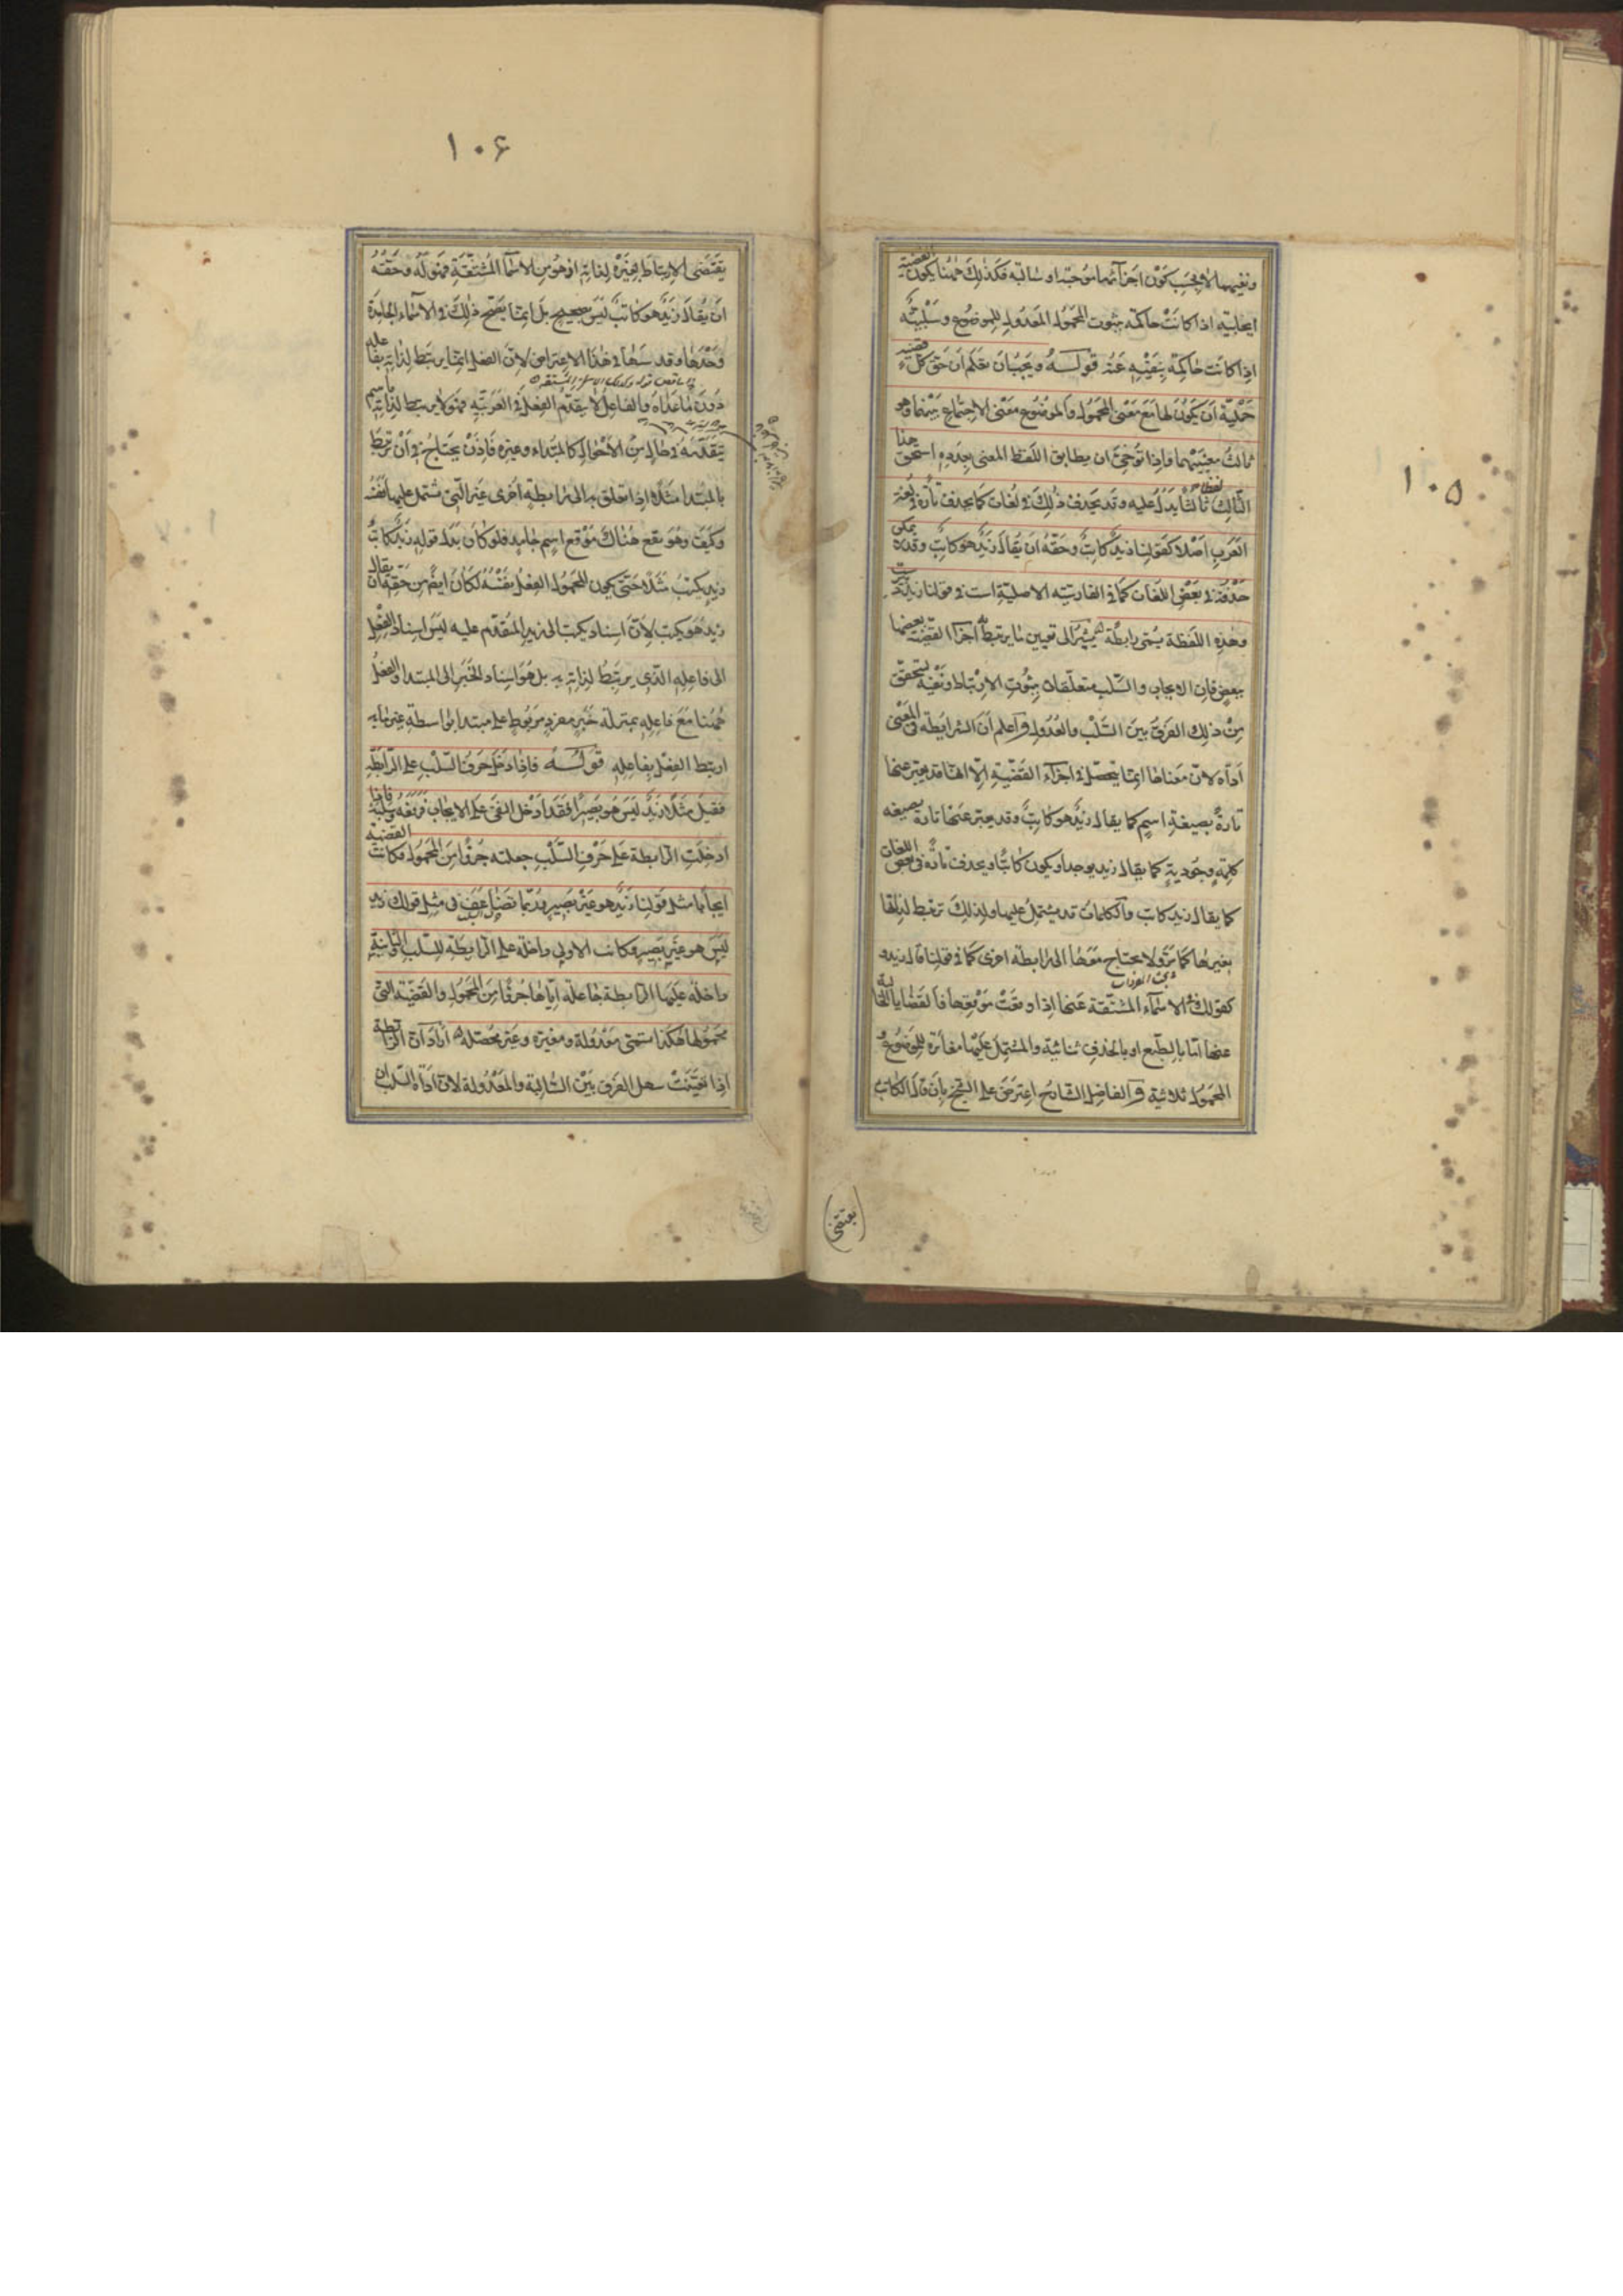 ١٠٥
ونفيهما لا بحسب كون اجزائهما موجبة او سالبة فكذلك ههنا يكون القضية
ايجابية اذا كانت حاكمة بثبوت المحمول المعدول للموضوع وسلبية
اذا كانت حاكمة بنفيه عنه قوله ويجب ان يعلم ان حق كل قضية
حملية ان يكون لها مع معنى المحمول والموضوع معنى الاجتماع بينهما وهو
ثالث معنييهما فاذا توخى ان يطابق اللفظ المعنى بعدده استحق هذا
الثالث لفظا ثالثا يدل عليه وقد يحذف ذلك في لغات كما يحذف تارة في لغة
العرب اصلا كقولنا زيد كاتب وحقه ان يقال زيد هو كاتب وقد لا يمكن
حذفه في بعض اللغات كما في الفارسية الاصلية است في قولنا زيد
وهذه اللفظة يسمى رابطة يشير الى تعيين ما يرتبط به اجزاء القضية بعضها
ببعض فان الايجاب والسلب متعلقان بثبوت الارتباط ونفيه ليتحقق
من ذلك الفرق بين السلب والعدول واعلم ان الرابطة في المعنى
اداة لان معناها انما يتحصل في اجزاء القضية الا انها قد يعبر عنها
تارة بصيغة اسم كما يقال زيد هو كاتب وقد يعبر عنها تارة بصيغة
كلمة وجودية كما يقال زيد يوجد او يكون كاتبا ويحذف تارة في بعض اللغات
كما يقال زيد كاتب والكلمات قد يشتمل عليها ولذلك ترتبط لذاتها
بغيرها كما مر ولا يحتاج معها الى رابطة اخرى كما في قولنا قال زيد و
كقولك الاسماء المشتقة عنها اذا وقعت موقعها فالقضايا الخالية
عنها اما بالطبع او بالحذف ثنائية والمشتمل عليها مغائرة للموضوع و
المحمول ثلاثية والفاضل الشارح اعترض على الشيخ بان قال الكاتب
(يقتضى)
١٠۶
يقتضى الارتباط بغيره لذاته اذ هو من الاسماء المشتقة فقوله وحقه
ان يقال زيد هو كاتب ليس بصحيح بل انما يصح ذلك في الاسماء الجامدة
وحدها وقد سها في هذا الاعتراض لان الفعل انما يرتبط لذاته بفاعله
دون ما عداه والفاعل لا يتقدم الفعل في العربية فهو لا يرتبط لذاته باسم
يتقدمه في حال من الاحوال كالمبتداء وغيره فاذن يحتاج في ان يرتبط
بالمبتدا مثلا اذا تعلق به الى رابطة اخرى غير التي تشتمل عليها نفسه
وكيف وهو يقع هناك موقع اسم جامد فلو كان بدل قوله زيد كاتب
زيد يكتب مثلا حتى يكون المحمول الفعل بنفسه لكان ايضا من حقه ان يقال
زيد هو يكتب لان اسناد يكتب الى زيد المتقدم عليه ليس اسناد الفعل
الى فاعله الذي يرتبط لذاته به بل هو اسناد الخبر الى المبتدا والفعل
ههنا مع فاعله بمنزلة خبر مفرد مربوط على مبتدا بواسطة غير ما به
ارتبط الفعل بفاعله قوله فاذا دخل حرف السلب على الرابطة
فقيل مثلا زيد ليس هو بصيرا فقد ادخل النفى على الايجاب فرفعه وسلبه فاذا
ادخلت الرابطة على حرف السلب جعلته جزءا من المحمول وكانت القضية
ايجابا مثل قولنا زيد هو غير بصير وربما تضاعف في مثل قولك زيد
ليس هو غير بصير وكانت الاولى داخلة على الرابطة للسلب والثانية
داخلة عليها الرابطة جاعلة اياها جزءا من المحمول والقضية التي
محمولها هكذا تسمى معدولة ومغيرة وغير محصلة اراد ان الرابطة
اذا تعينت سهل الفرق بين السالبة والمعدولة لان اداة السلب ان